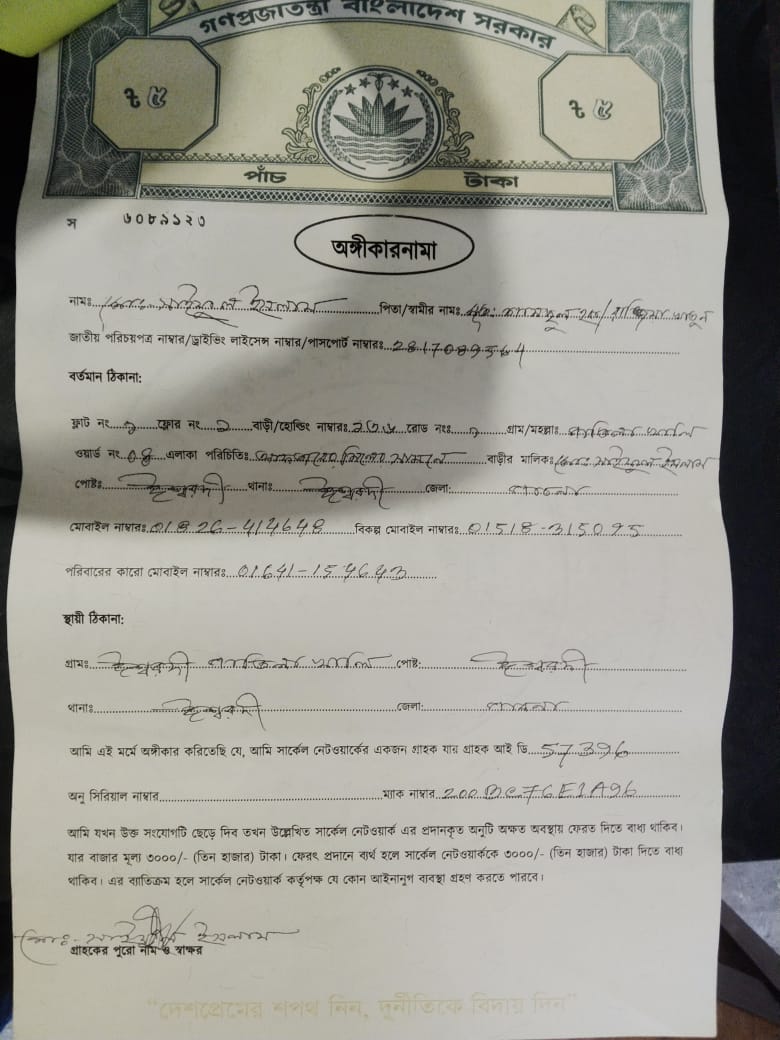 গণপ্রজাতন্ত্রী বাংলাদেশ সরকার
৳ ৫ ৳ ৫
পাঁচ টাকা
স ৬০৮৯১২৩
অঙ্গীকারনামা
নামঃ মোঃ সাইফুল ইসলাম পিতা/স্বামীর নামঃ
জাতীয় পরিচয়পত্র নাম্বার/ড্রাইভিং লাইসেন্স নাম্বার/পাসপোর্ট নাম্বারঃ 2817089564
বর্তমান ঠিকানা:
ফ্লাট নং ফ্লোর নং বাড়ী/হোল্ডিং নাম্বারঃ রোড নংঃ গ্রাম/মহল্লাঃ
ওয়ার্ড নং 04 এলাকা পরিচিতিঃ বাড়ীর মালিকঃ মোঃ সাইফুল ইসলাম
পোষ্টঃ ঈশ্বরদী থানাঃ ঈশ্বরদী জেলা: পাবনা
মোবাইল নাম্বারঃ 01826-414648 বিকল্প মোবাইল নাম্বারঃ 01518-315095
পরিবারের কারো মোবাইল নাম্বারঃ 01641-154643
স্থায়ী ঠিকানা:
গ্রামঃ ঈশ্বরদী পোষ্ট: ঈশ্বরদী
থানাঃ ঈশ্বরদী জেলা: পাবনা
আমি এই মর্মে অঙ্গীকার করিতেছি যে, আমি সার্কেল নেটওয়ার্কের একজন গ্রাহক যার গ্রাহক আই ডি 57396
অনু সিরিয়াল নাম্বার ম্যাক নাম্বার 200BC76E1A96
আমি যখন উক্ত সংযোগটি ছেড়ে দিব তখন উল্লেখিত সার্কেল নেটওয়ার্ক এর প্রদানকৃত অনুটি অক্ষত অবস্থায় ফেরত দিতে বাধ্য থাকিব।
যার বাজার মূল্য ৩০০০/- (তিন হাজার) টাকা। ফেরৎ প্রদানে ব্যর্থ হলে সার্কেল নেটওয়ার্ককে ৩০০০/- (তিন হাজার) টাকা দিতে বাধ্য
থাকিব। এর ব্যতিক্রম হলে সার্কেল নেটওয়ার্ক কর্তৃপক্ষ যে কোন আইনানুগ ব্যবস্থা গ্রহণ করতে পারবে।
মোঃ সাইফুল ইসলাম
গ্রাহকের পুরো নাম ও স্বাক্ষর
"দেশপ্রেমের শপথ নিন, দুর্নীতিকে বিদায় দিন"